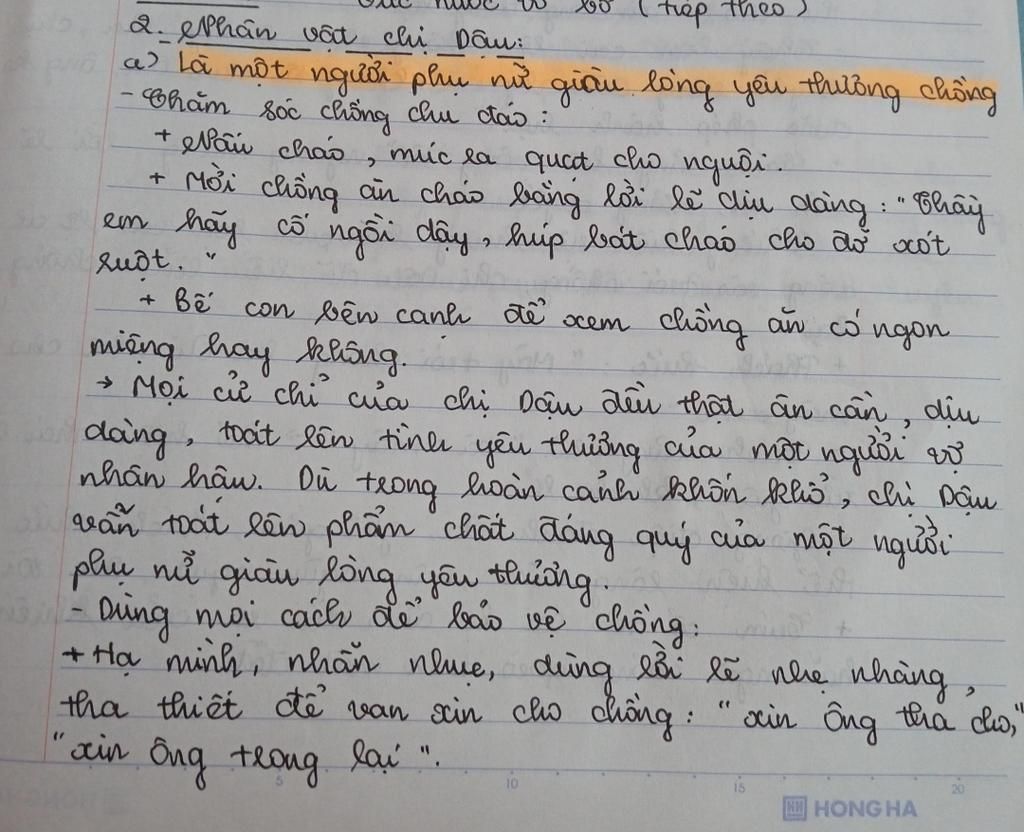 Tức nước vỡ bờ (tiếp theo)
2. Nhân vật chị Dậu:
a) Là một người phụ nữ giàu lòng yêu thương chồng
- Chăm sóc chồng chu đáo:
+ Nấu cháo, múc ra quạt cho nguội.
+ Mời chồng ăn cháo bằng lời lẽ dịu dàng: "Thầy
em hãy cố ngồi dậy, húp bát cháo cho đỡ xót
ruột."
+ Bế con bên cạnh để xem chồng ăn có ngon
miệng hay không.
→ Mọi cử chỉ của chị Dậu đều thật ân cần, dịu
dàng, toát lên tình yêu thương của một người vợ
nhân hâu. Dù trong hoàn cảnh khốn khổ, chị Dậu
vẫn toát lên phẩm chất đáng quý của một người
phụ nữ giàu lòng yêu thương.
- Dùng mọi cách để bảo vệ chồng:
+ Hạ mình, nhẫn nhục, dùng lời lẽ nhẹ nhàng,
tha thiết để van xin cho chồng: "xin ông tha cho,"
"xin ông trong lại".
5 10 15 20
HONG HA